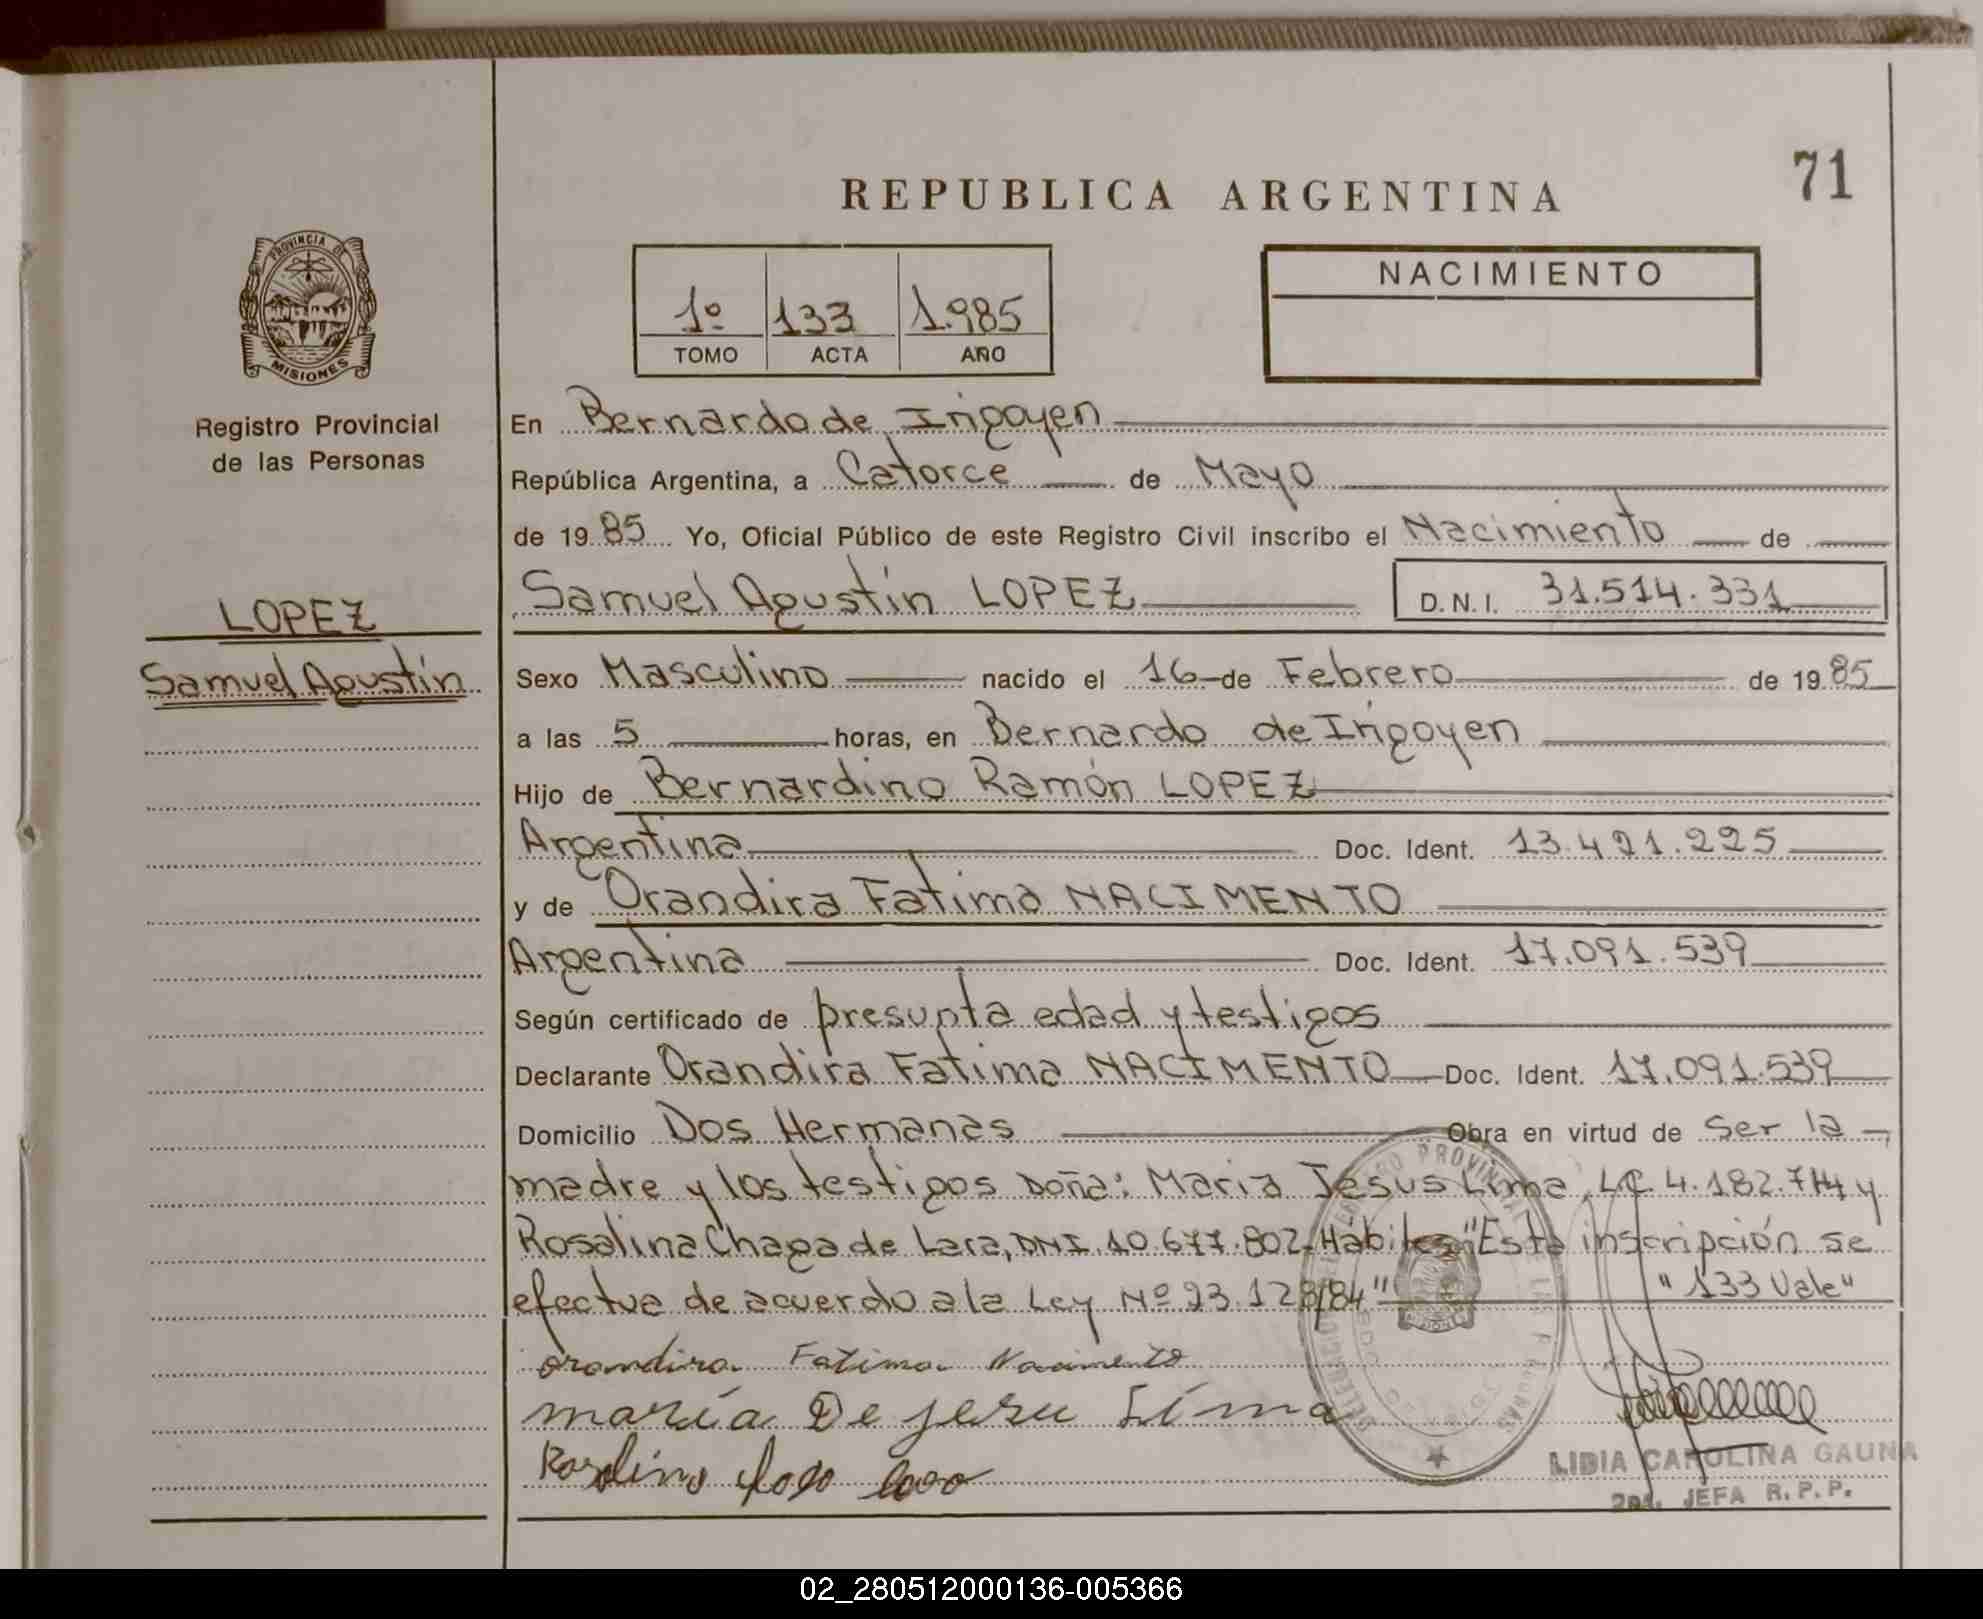 71
REPUBLICA ARGENTINA
PROVINCIA DE
MISIONES
Registro Provincial
de las Personas
LOPEZ
Samuel Agustín
1º 133 1.985
TOMO ACTA AÑO
NACIMIENTO
En Bernardo de Irigoyen
República Argentina, a Catorce de Mayo
de 19 85 Yo, Oficial Público de este Registro Civil inscribo el Nacimiento de
Samuel Agustín LOPEZ D.N.I. 31.514.331
Sexo Masculino nacido el 16 de Febrero de 19 85
a las 5 horas, en Bernardo de Irigoyen
Hijo de Bernardino Ramón LOPEZ
Argentina Doc. Ident. 13.421.225
y de Orandira Fatima NACIMENTO
Argentina Doc. Ident. 17.091.539
Según certificado de presunta edad y testigos
Declarante Orandira Fatima NACIMENTO Doc. Ident. 17.091.539
Domicilio Dos Hermanas Obra en virtud de Ser la
madre y los testigos Doña: Maria Jesus Lima, LC 4.182.714 y
Rosalina Chaga de Lara, DNI 10.677.802. Hábiles "Esta inscripción se
efectua de acuerdo a la Ley Nº 23.128/84" "133 Vale"
Orandira Fatima Nacimento
maría De jesu Líma
LIDIA CAROLINA GAUNA
JEFA R.P.P.
02_280512000136-005366